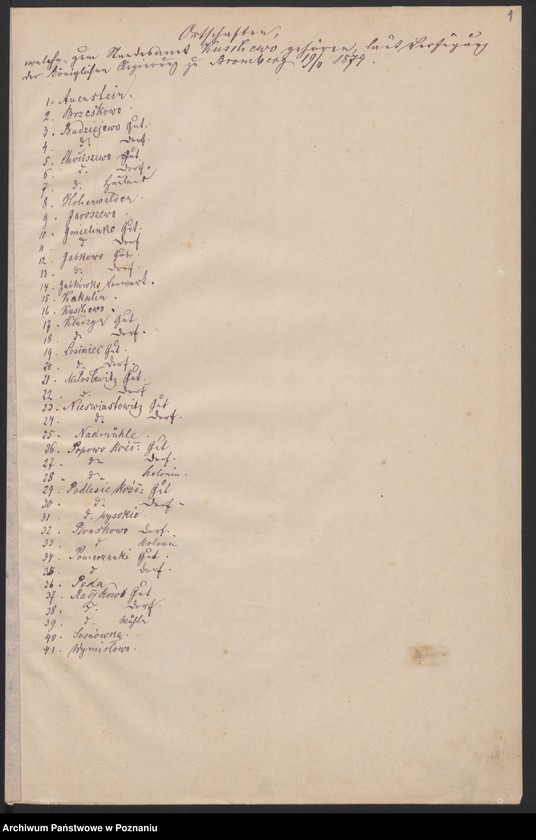 1
Ortschaften,
welche zum Standesamt Kuschewo gehören, laut Verfügung
der Königlichen Regierung zu Bromberg 19/11 1874.
1. Auenstein.
2. Brzeskowo.
3. Budziejewo Gut.
4. do Dorf.
5. Chojuszewo Gut
6. do Dorf.
7. do Hauland
8. Hohenwalden.
9. Jaroszewo.
10. Gmielinko Gut.
11. do Dorf
12. Jabkowo Gut.
13. do Dorf.
14. Jabkowko Vorwerk.
15. Kakulin.
16. Kuschewo.
17. Kludzyn Gut
18. do Dorf.
19. Losiniec Gut.
20. do Dorf.
21. Miloslawitz Gut.
22. do Dorf
23. Nieswiastowitz Gut
24. do Dorf.
25. Nadmühle.
26. Popowo kośc: Gut
27. do Dorf.
28. do Kolonie.
29. Podlesie kośc: Gut
30. do Dorf.
31. do wysokie
32. Ponskowo Dorf.
33. do Kolonie
34. Pomarzanki Gut.
35. do Dorf.
36. Peda
37. Raczkowo Gut
38. do Dorf.
39. do Mühle
40. Sosnówka.
41. Wymislowo.
Archiwum Państwowe w Poznaniu